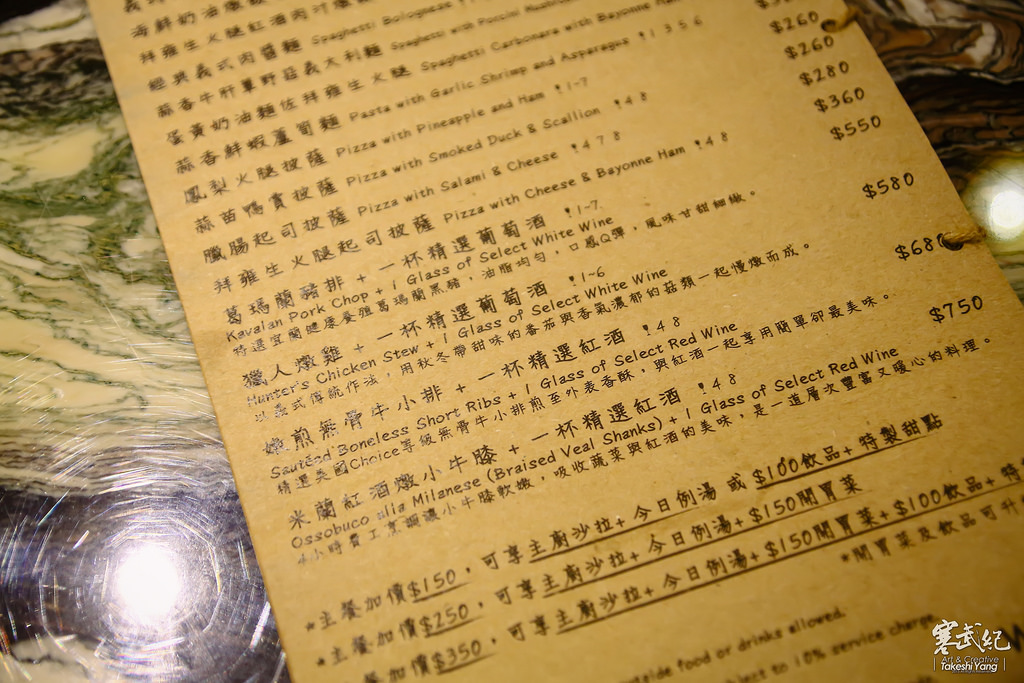 海鮮奶油燉飯
拜雍生火腿紅酒肉汁燉
經典義式肉醬麵 Spaghetti Bolognese
蒜香牛肝蕈野菇義大利麵 Spaghetti with Porcini Mushrooms
蛋黃奶油麵佐拜雍生火腿 Spaghetti Carbonara with Bayonne Ham
蒜香鮮蝦蘆筍麵 Pasta with Garlic Shrimp and Asparagus 1 3 5 6
$260
鳳梨火腿披薩 Pizza with Pineapple and Ham 1-7 $260
蒜苗鴨賞披薩 Pizza with Smoked Duck & Scallion 4 8 $280
臘腸起司披薩 Pizza with Salami & Cheese 4 7 8 $360
拜雍生火腿起司披薩 Pizza with Cheese & Bayonne Ham 4 8 $550
葛瑪蘭豬排 + 一杯精選葡萄酒 1-7 $580
Kavalan Pork Chop + 1 Glass of Select White Wine
特選宜蘭健康養殖葛瑪蘭黑豬，油脂均勻，口感Q彈，風味甘甜細緻。
獵人燉雞 + 一杯精選葡萄酒 1-6 $680
Hunter's Chicken Stew + 1 Glass of Select White Wine
以義式傳統作法，用秋冬帶甜味的番茄與香氣濃郁的菇類一起慢燉而成。
嫩煎無骨牛小排 + 一杯精選紅酒 4 8 $750
Sautéed Boneless Short Ribs + 1 Glass of Select Red Wine
精選美國Choice等級無骨牛小排煎至外表香酥，與紅酒一起享用簡單卻最美味。
米蘭紅酒燉小牛膝 + 一杯精選紅酒 4 8
Ossobuco alla Milanese (Braised Veal Shanks) + 1 Glass of Select Red Wine
4小時費工烹調讓小牛膝軟嫩，吸收蔬菜與紅酒的美味，是一道層次豐富又暖心的料理。
*主餐加價$150，可享主廚沙拉+ 今日例湯 或 $100飲品+ 特製甜點
*主餐加價$250，可享主廚沙拉+ 今日例湯+ $150開胃菜
餐加價$350，可享主廚沙拉+ 今日例湯+ $150開胃菜+ $100飲品+ 特
*開胃菜及飲品可升
side food or drinks allowed.
ject to 10% service charge
寒武紀
Art & Creative
Takeshi Yang